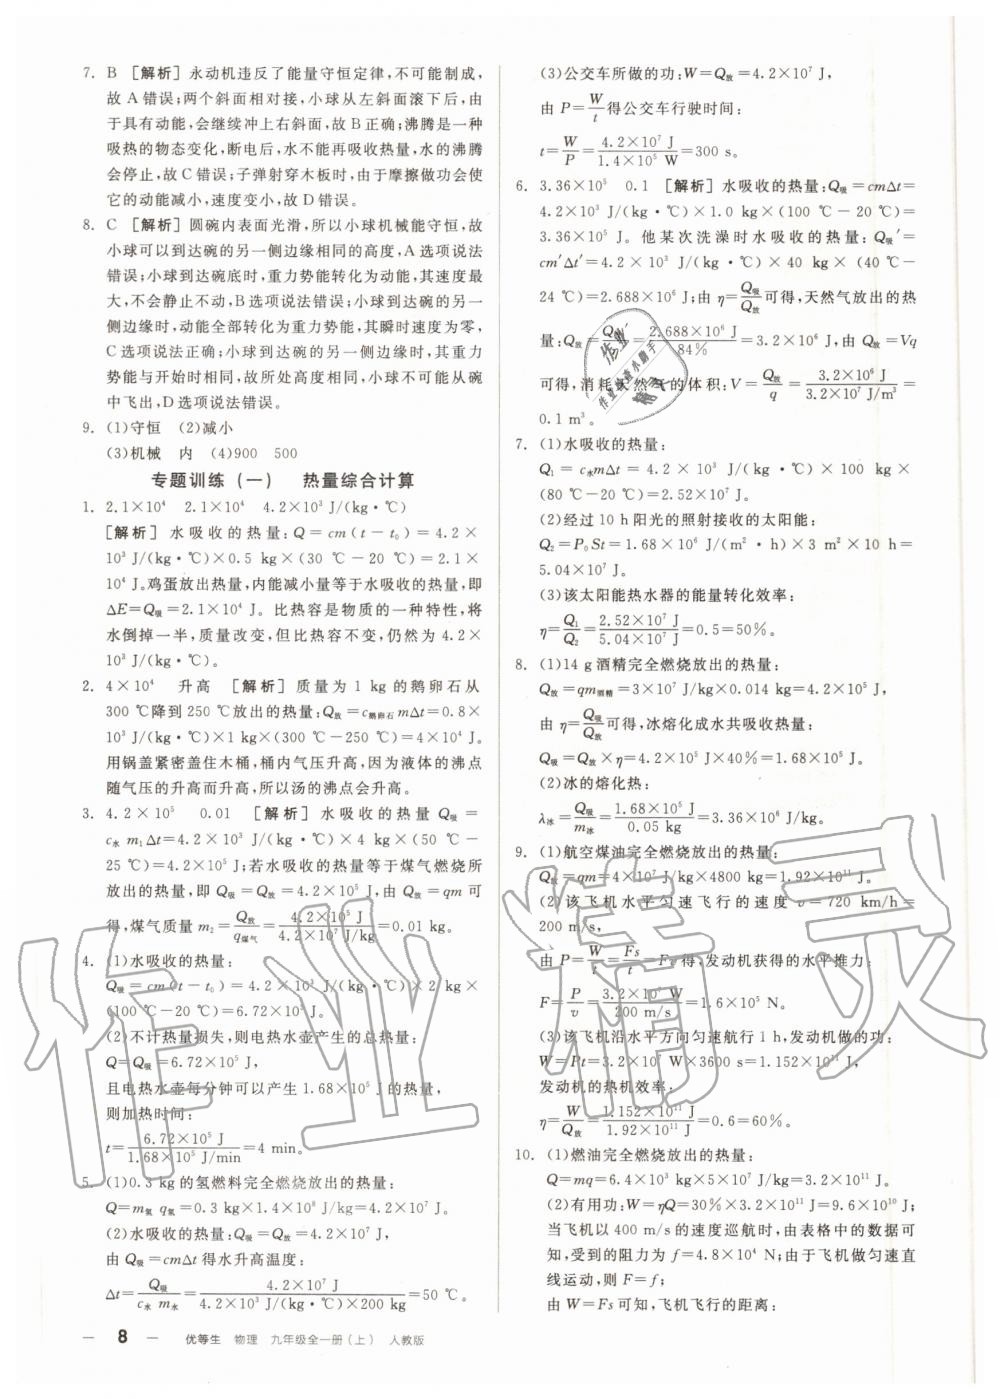 7. B [解析]永动机违反了能量守恒定律,不可能制成,
故A错误;两个斜面相对接,小球从左斜面滚下后,由
于具有动能,会继续冲上右斜面,故B正确;沸腾是一种
吸热的物态变化,断电后,水不能再吸收热量,水的沸腾
会停止,故C错误;子弹射穿木板时,由于摩擦做功会使
它的动能减小,速度变小,故D错误。
8. C [解析]圆碗内表面光滑,所以小球机械能守恒,故
小球可以到达碗的另一侧边缘相同的高度,A选项说法
错误;小球到达碗底时,重力势能转化为动能,其速度最
大,不会静止不动,B选项说法错误;小球到达碗的另一
侧边缘时,动能全部转化为重力势能,其瞬时速度为零,
C选项说法正确;小球到达碗的另一侧边缘时,其重力
势能与开始时相同,故所处高度相同,小球不可能从碗
中飞出,D选项说法错误。
9. (1)守恒 (2)减小
(3)机械 内 (4)900 500
专题训练(一) 热量综合计算
1. 2.1×10⁴ 2.1×10⁴ 4.2×10³ J/(kg·℃)
[解析]水吸收的热量:Q=cm(t-t₀)=4.2×
10³ J/(kg·℃)×0.5 kg×(30 ℃-20 ℃)=2.1×
10⁴ J。鸡蛋放出热量,内能减小量等于水吸收的热量,即
ΔE=Q吸=2.1×10⁴ J。比热容是物质的一种特性,将
水倒掉一半,质量改变,但比热容不变,仍然为4.2×
10³ J/(kg·℃)。
2. 4×10⁴ 升高 [解析]质量为1 kg的鹅卵石从
300 ℃降到250 ℃放出的热量:Q放=c鹅卵石mΔt=0.8×
10³ J/(kg·℃)×1 kg×(300 ℃-250 ℃)=4×10⁴ J。
用锅盖紧密盖住木桶,桶内气压升高,因为液体的沸点
随气压的升高而升高,所以汤的沸点会升高。
3. 4.2×10⁵ 0.01 [解析]水吸收的热量Q吸=
c水m₁Δt=4.2×10³ J/(kg·℃)×4 kg×(50 ℃-
25 ℃)=4.2×10⁵ J;若水吸收的热量等于煤气燃烧所
放出的热量,即Q吸=Q放=4.2×10⁵ J,由Q放=qm可
得,煤气质量m₂=Q放/q煤气=4.2×10⁵ J/4.2×10⁷ J/kg=0.01 kg。
4. (1)水吸收的热量:
Q吸=cm(t-t₀)=4.2×10³ J/(kg·℃)×2 kg×
(100 ℃-20 ℃)=6.72×10⁵ J。
(2)不计热量损失,则电热水壶产生的总热量:
Q=Q吸=6.72×10⁵ J,
且电热水壶每分钟可以产生1.68×10⁵ J的热量,
则加热时间:
t=6.72×10⁵ J/1.68×10⁵ J/min=4 min。
5. (1)0.3 kg的氢燃料完全燃烧放出的热量:
Q=m氢q氢=0.3 kg×1.4×10⁸ J/kg=4.2×10⁷ J。
(2)水吸收的热量:Q吸=Q=4.2×10⁷ J,
由Q吸=cmΔt得水升高温度:
Δt=Q吸/c水m水=4.2×10⁷ J/4.2×10³ J/(kg·℃)×200 kg=50 ℃。
(3)公交车所做的功:W=Q放=4.2×10⁷ J,
由P=W/t得公交车行驶时间:
t=W/P=4.2×10⁷ J/1.4×10⁵ W=300 s。
6. 3.36×10⁵ 0.1 [解析]水吸收的热量:Q吸=cmΔt=
4.2×10³ J/(kg·℃)×1.0 kg×(100 ℃-20 ℃)=
3.36×10⁵ J。他某次洗澡时水吸收的热量:Q吸′=
cm′Δt′=4.2×10³ J/(kg·℃)×40 kg×(40 ℃-
24 ℃)=2.688×10⁶ J;由η=Q吸/Q放可得,天然气放出的热
量:Q放=2.688×10⁶ J/84%=3.2×10⁶ J,由Q放=Vq
可得,消耗天然气的体积:V=Q放/q=3.2×10⁶ J/3.2×10⁷ J/m³=
0.1 m³。
7. (1)水吸收的热量:
Q₁=c水mΔt=4.2×10³ J/(kg·℃)×100 kg×
(80 ℃-20 ℃)=2.52×10⁷ J。
(2)经过10 h阳光的照射接收的太阳能:
Q₂=P₀St=1.68×10⁶ J/(m²·h)×3 m²×10 h=
5.04×10⁷ J。
(3)该太阳能热水器的能量转化效率:
η=Q₁/Q₂=2.52×10⁷ J/5.04×10⁷ J=0.5=50%。
8. (1)14 g酒精完全燃烧放出的热量:
Q放=qm酒精=3×10⁷ J/kg×0.014 kg=4.2×10⁵ J,
由η=Q吸/Q放可得,冰熔化成水共吸收热量:
Q吸=Q放×η=4.2×10⁵ J×40%=1.68×10⁵ J。
(2)冰的熔化热:
λ冰=Q吸/m冰=1.68×10⁵ J/0.05 kg=3.36×10⁶ J/kg。
9. (1)航空煤油完全燃烧放出的热量:
Q放=qm=4×10⁷ J/kg×4800 kg=1.92×10¹¹ J。
(2)该飞机水平匀速飞行的速度v=720 km/h=
200 m/s,
由P=W/t=Fs/t=Fv得,发动机获得的水平推力:
F=P/v=3.2×10⁷ W/200 m/s=1.6×10⁵ N。
(3)该飞机沿水平方向匀速航行1 h,发动机做的功:
W=Pt=3.2×10⁷ W×3600 s=1.152×10¹¹ J,
发动机的热机效率:
η=W/Q放=1.152×10¹¹ J/1.92×10¹¹ J=0.6=60%。
10. (1)燃油完全燃烧放出的热量:
Q=mq=6.4×10³ kg×5×10⁷ J/kg=3.2×10¹¹ J。
(2)有用功:W=ηQ=30%×3.2×10¹¹ J=9.6×10¹⁰ J;
当飞机以400 m/s的速度巡航时,由表格中的数据可
知,受到的阻力为f=4.8×10⁴ N;由于飞机做匀速直
线运动,则F=f;
由W=Fs可知,飞机飞行的距离:
8 优等生 物理 九年级全一册(上) 人教版
作业精灵